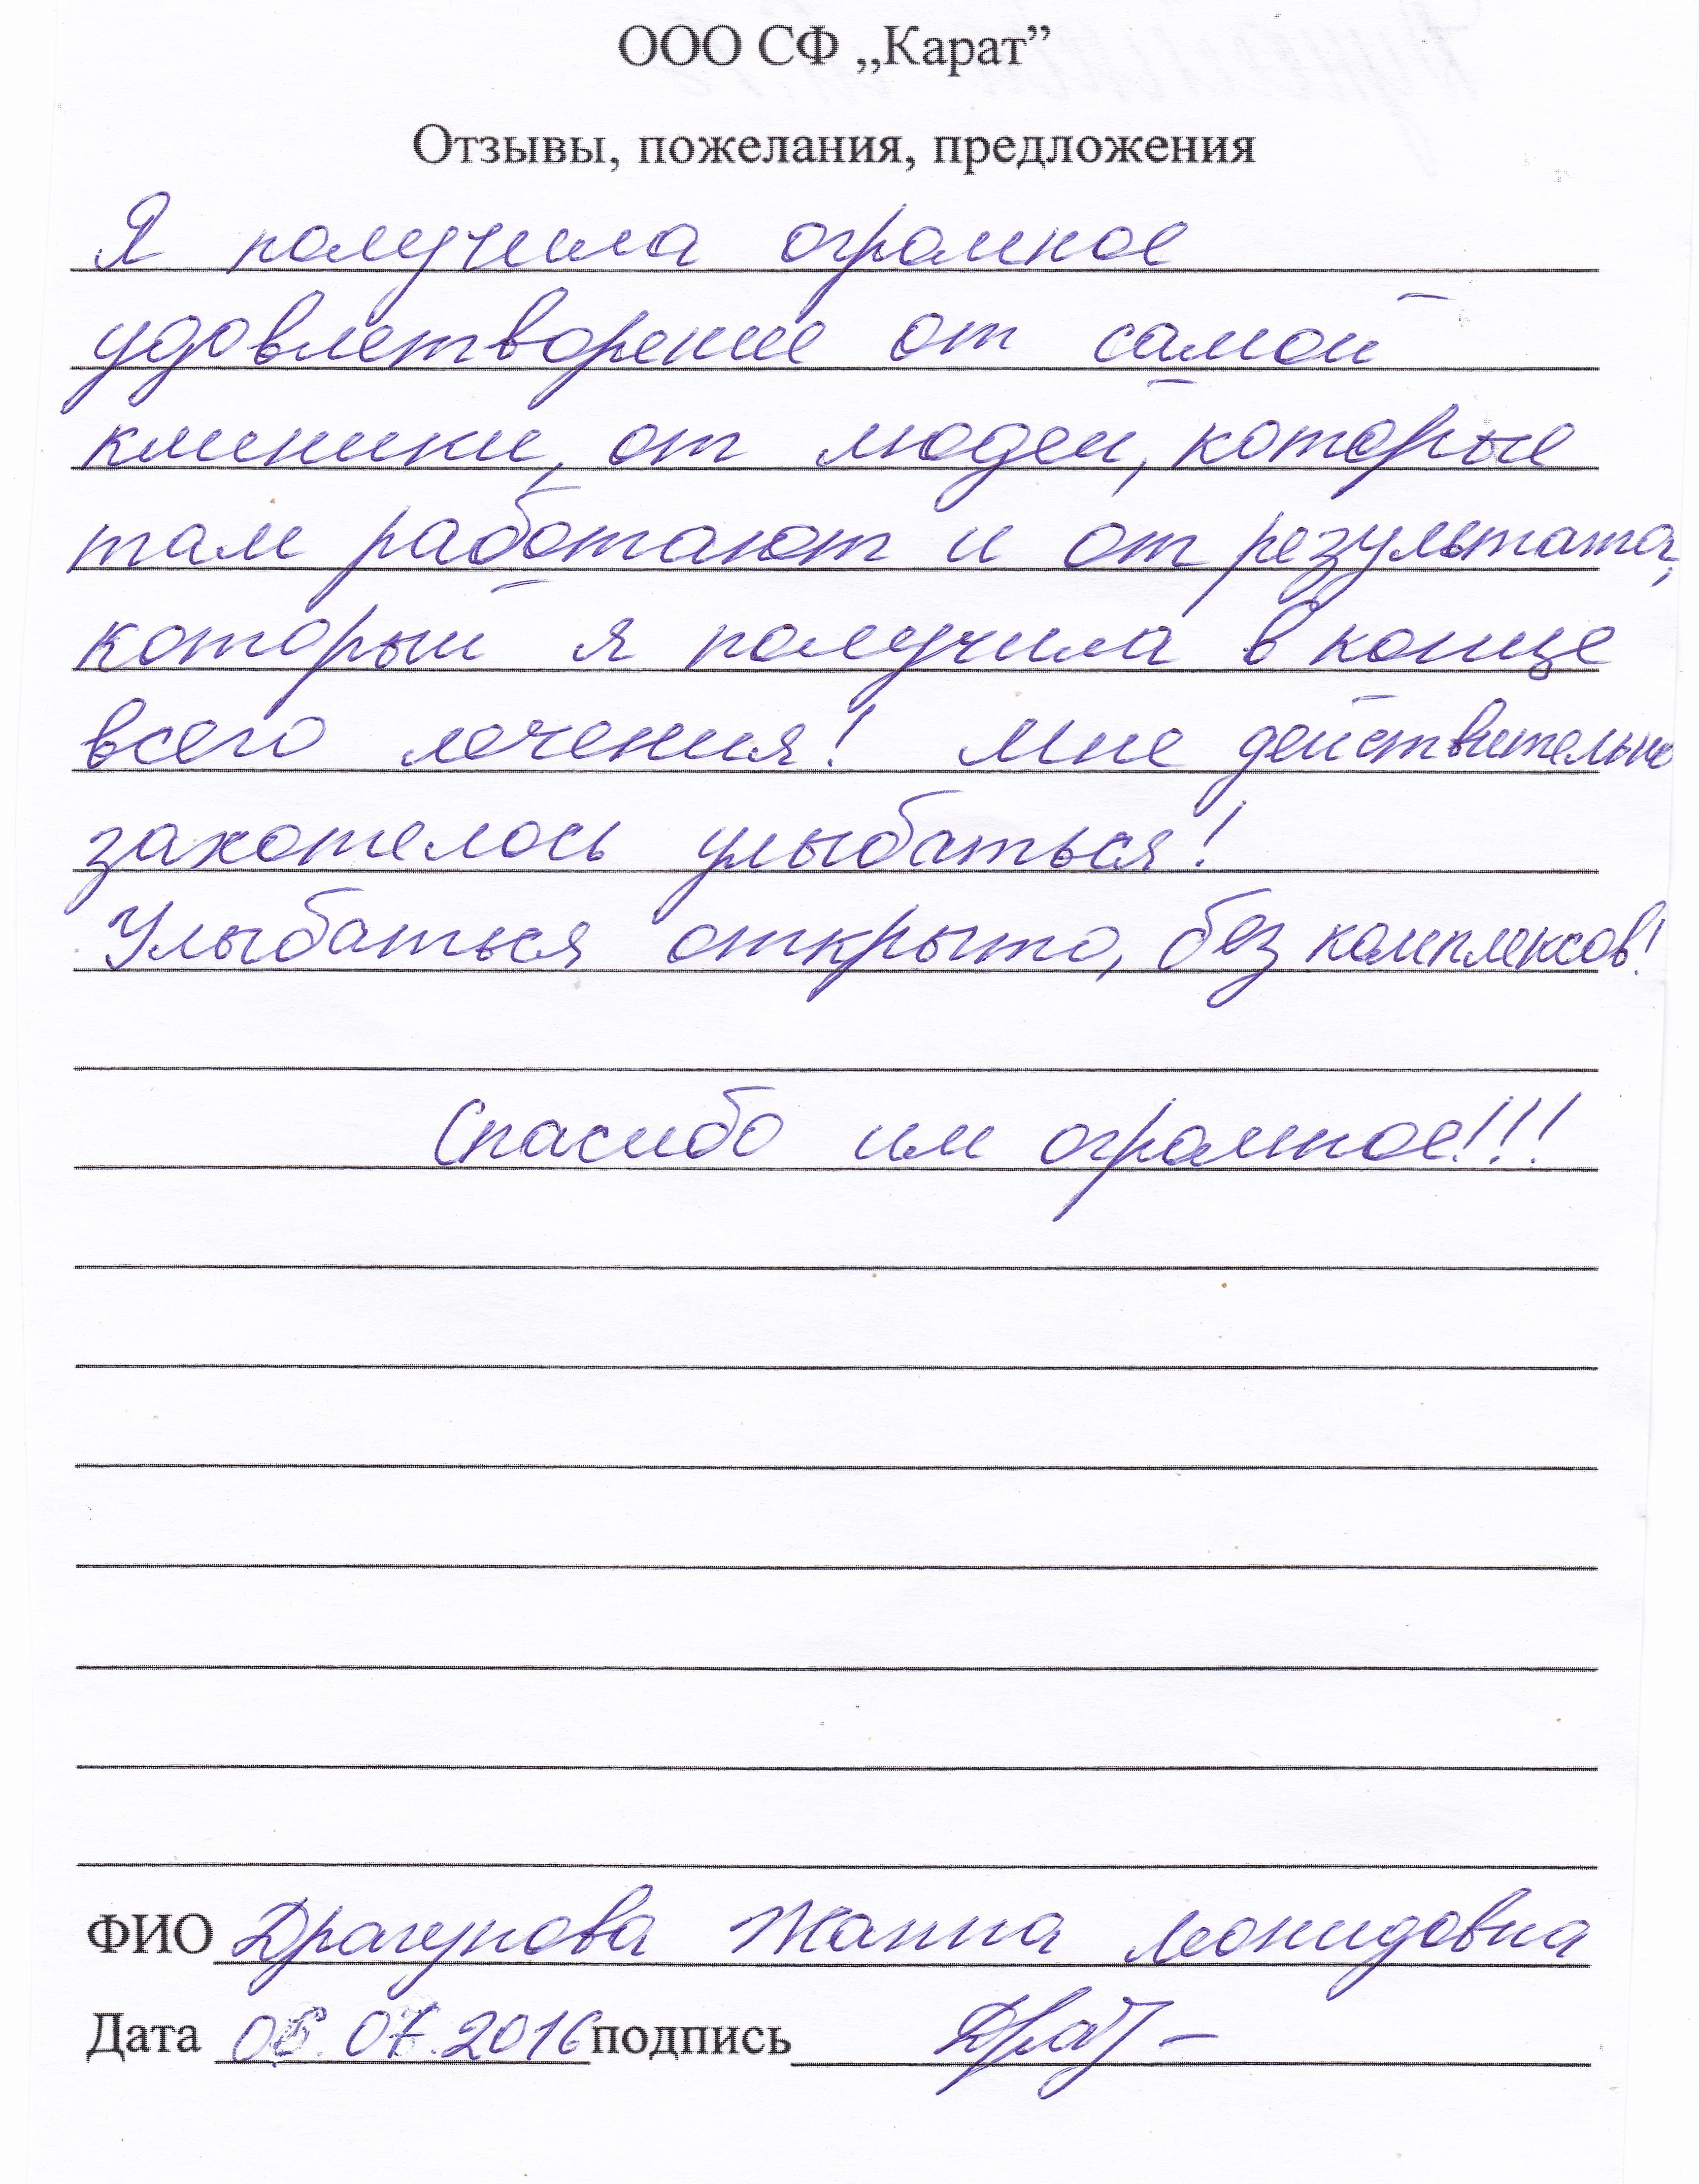 ООО СФ „Карат”
Отзывы, пожелания, предложения
Я получила огромное
удовлетворение от самой
клиники, от людей, которые
там работают и от результата,
который я получила в конце
всего лечения! Мне действительно
захотелось улыбаться!
Улыбаться открыто, без комплексов!
Спасибо им огромное!!!
ФИО Драгунова Жанна Леонидовна
Дата 07.2016 подпись